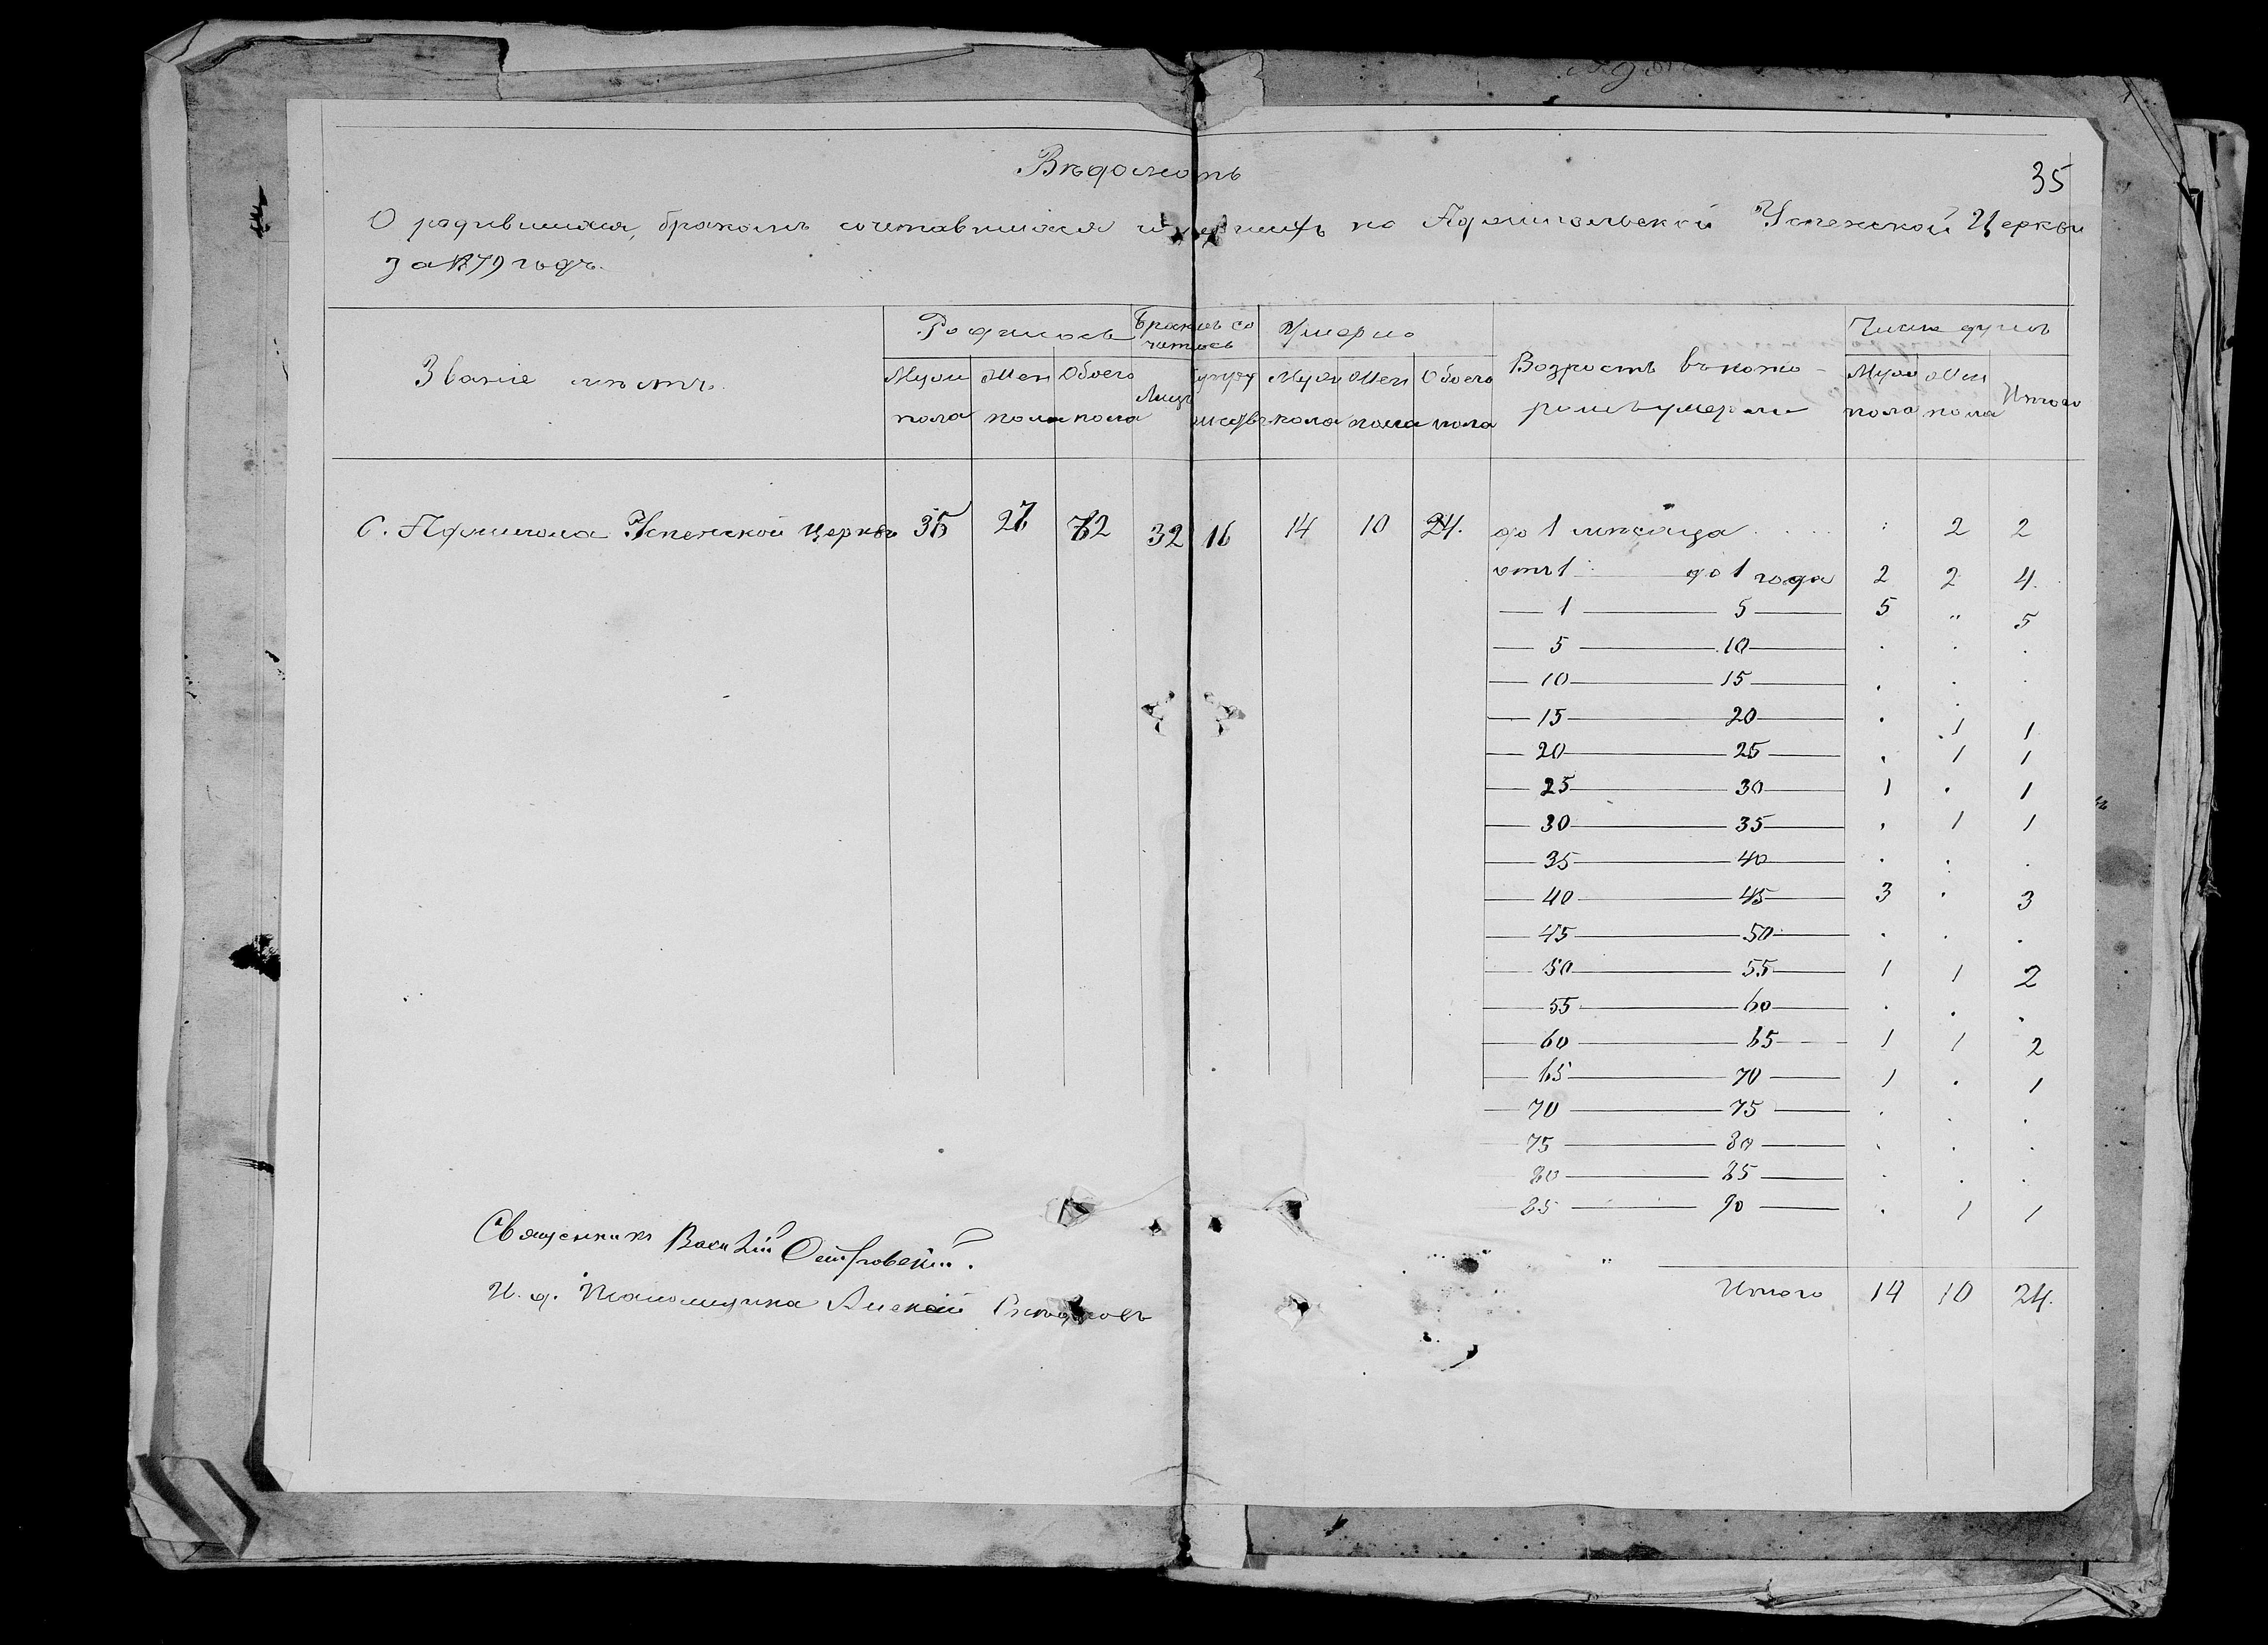 35
Вѣдомость
О родившихся, бракомъ сочетавшихся и умершихъ по Успенской Церкви
за 1879 годъ.
Званіе мѣстъ. Родилось Бракомъ сочеталось Умерло Возрастъ въ которомъ умерли Число душъ
Муж Жен Обоего Лицъ Супру Муж Жен Обоего Муж Жен Итого
пола пола пола жествъ пола пола пола пола пола
С. Успенской Церкви 35 27 62 32 16 14 10 24. до 1 мѣсяца 2 2
отъ 1 до 1 года 2 2 4.
— 1 — 5 — 5 " 5
— 5 — 10 — . . .
— 10 — 15 — . . .
— 15 — 20 — . 1 1
— 20 — 25 — . 1 1
— 25 — 30 — 1 . 1
— 30 — 35 — . 1 1
— 35 — 40 — . . .
— 40 — 45 — 3 . 3
— 45 — 50 — . . .
— 50 — 55 — 1 1 2
— 55 — 60 — . . .
— 60 — 65 — 1 1 2
— 65 — 70 — 1 . 1
— 70 — 75 — . . .
— 75 — 80 — . . .
— 80 — 85 — . . .
— 85 — 90 — . 1 1
Итого 14 10 24.
Священникъ Василій Островскій.
И. д. Псаломщика Алексѣй